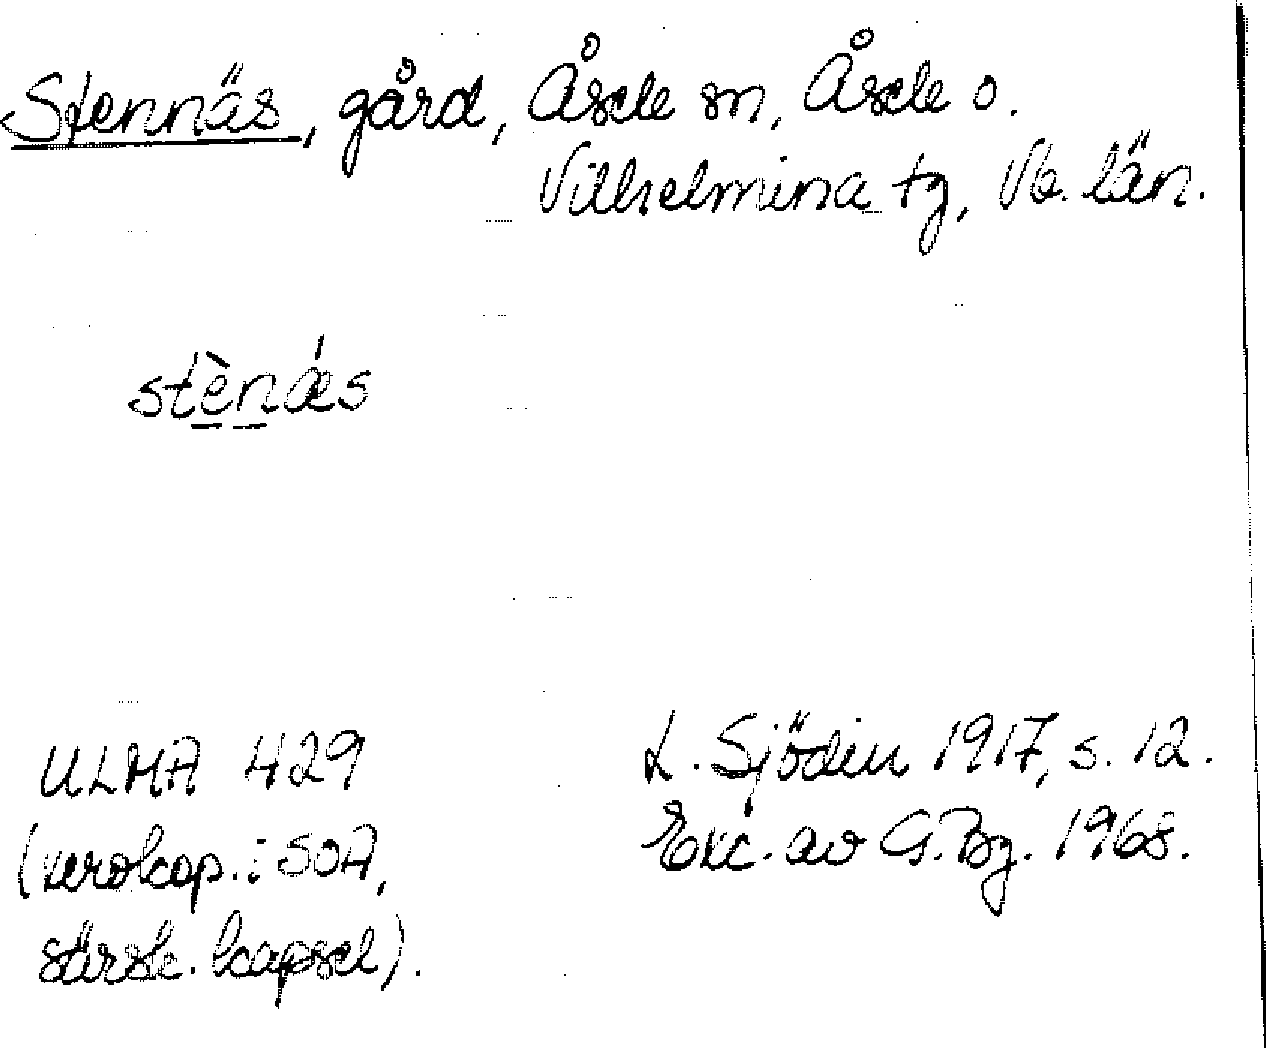 Stennäs, gård, Åsele sn, Åsele o.
Vilhelmina tg, Vb. län.
stènǽs
ULMA 429
(xerokop. i SOA,
särsk. kapsel).
L. Sjödin 1917, s. 12.
Exc. av G. Bg. 1968.